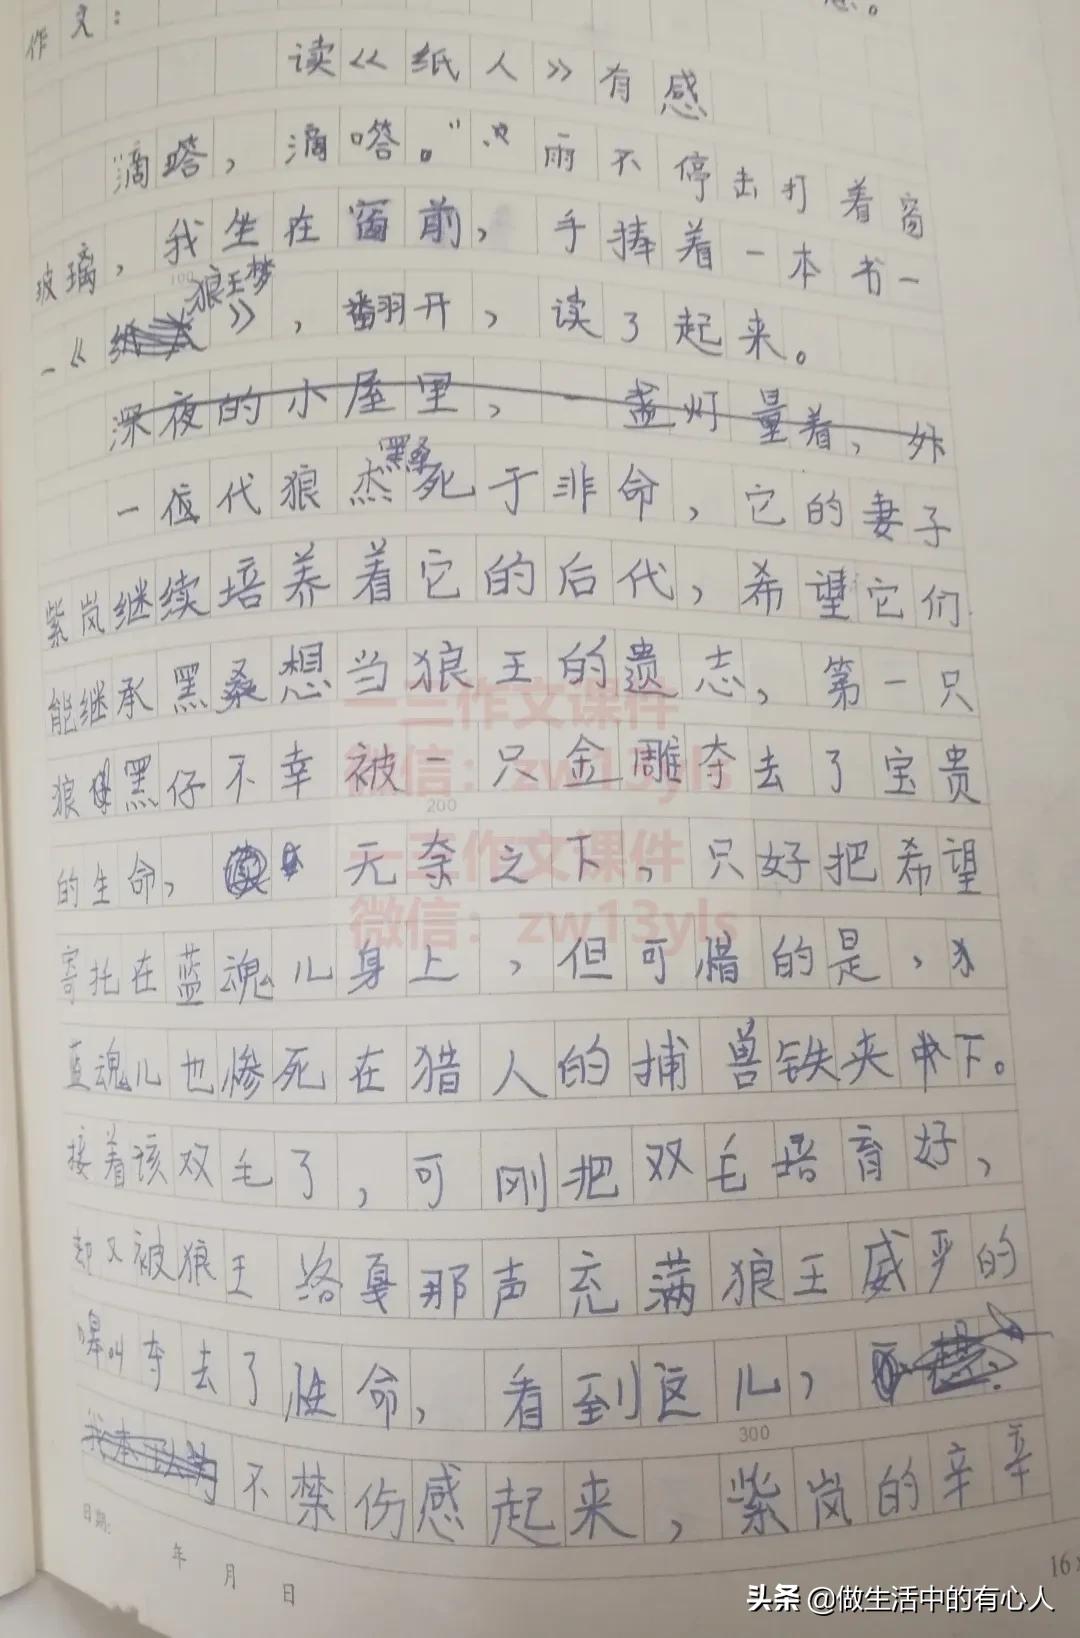 感。
作文：
读《纸人》有感
“滴嗒，滴嗒。”雨不停击打着窗
玻璃，我坐在窗前，手捧着一本书一
狼王梦
一《》，翻开，读了起来。
深夜的小屋里，一盏灯量着，外
黑桑
一位代狼杰死于非命，它的妻子
紫岚继续培养着它的后代，希望它们
能继承黑桑想当狼王的遗志，第一只
狼黑仔不幸被一只金雕夺去了宝贵
200
的生命，无奈之下，只好把希望
寄托在蓝魂儿身上，但可惜的是，
蓝魂儿也惨死在猎人的捕兽铁夹下。
接着该双毛了，可刚把双毛培育好，
却又被狼王洛戛那声充满狼王威严的
嗥叫夺去了性命，看到这儿，
300
我本以为不禁伤感起来，紫岚的辛辛
日期：
年 月 日
16
一三作文课件
微信：zw13yls
一三作文课件
微信：zw13yls
头条 @做生活中的有心人